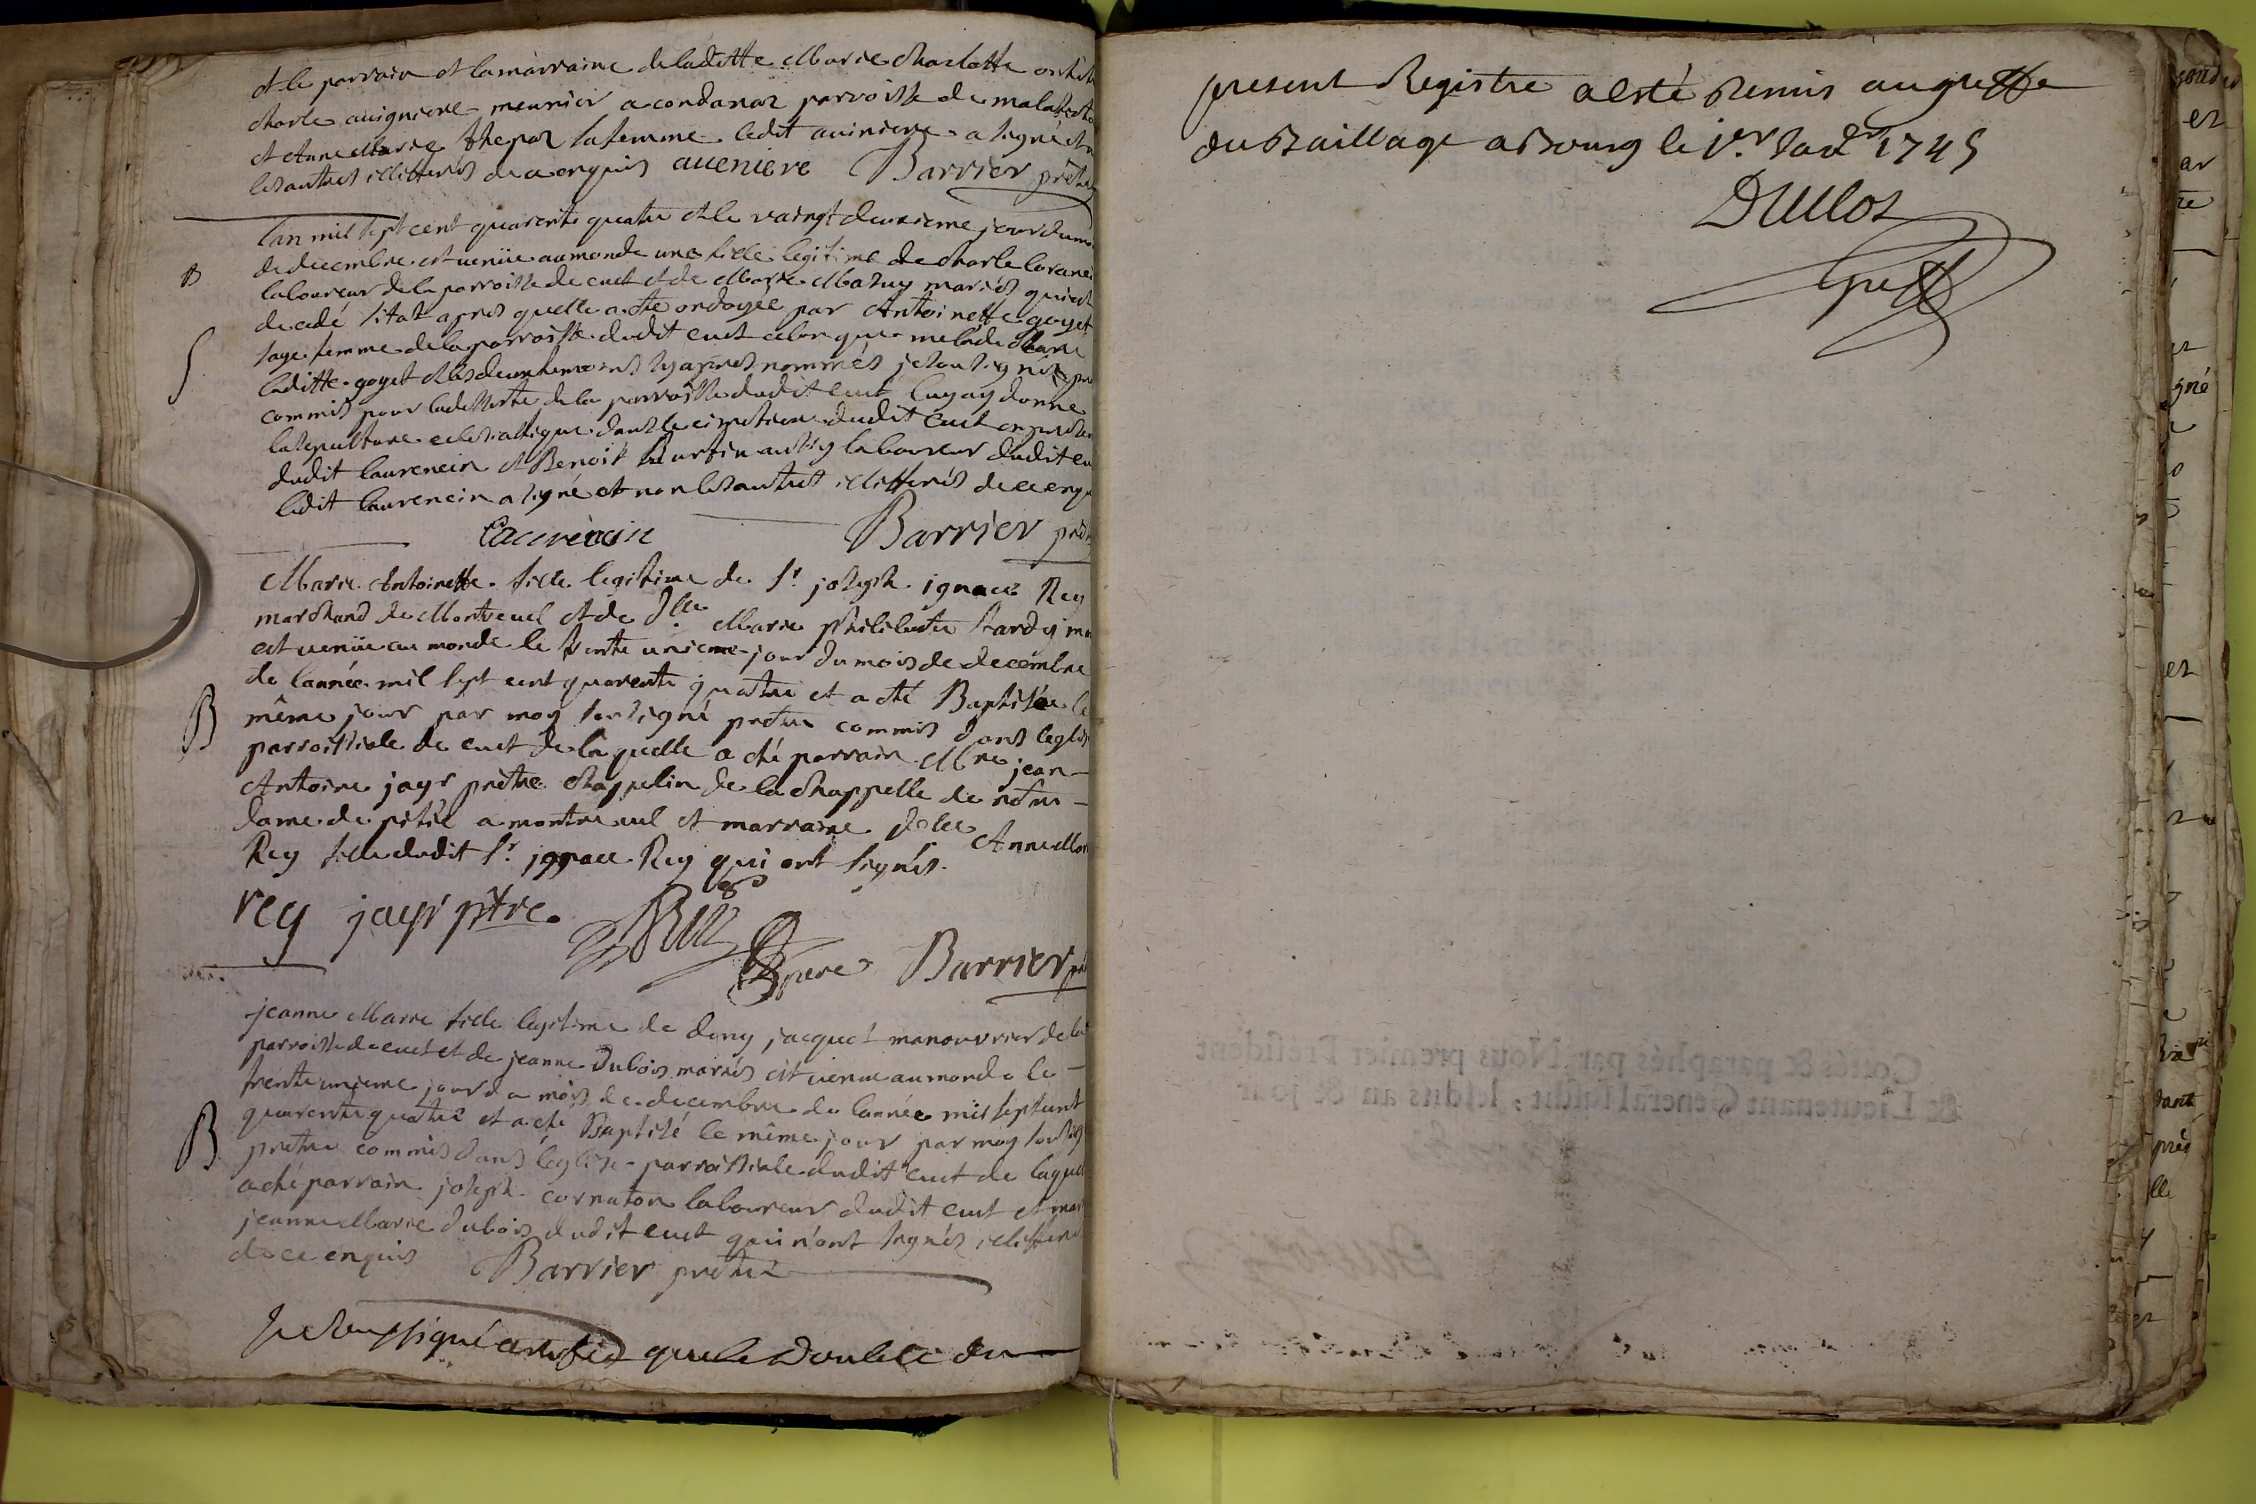 et le parrain et la marraine de laditte Marie Charlotte ont été
charle auigniere meunier a condanaz parroisse de malafretaz
et Anne Marie sa femme ledit auiniere a signé et
les autres illiterés de ce enquis aueniere Barrier prêtre
Lan mil sept cent quarente quatre et le vaingt deuxieme jour du mois
de decembre est venüe au monde une fille legitime de charle lorane
laboureur de la parroisse de cuet et de Marie Mathy mariés qui est
decedé sitot apres quelle a eté ondoyée par Antoinette goyet
B
sage femme de la parroisse dudit cuet celon que me la de claré
laditte goyet et les deux temoins cy apres nommés je sousigné prêtre
S
commis pour la desserte de la parroisse dudit cuet luy ay donné
la sepulture eclesiastique dans le cimetiere dudit cuet en presence
dudit laurencin et Benoit Burtin aussy laboureur dudit cuet
ledit laurencin a signé et non les autres illitterés de ce enquis
Laurencin Barrier prêtre
Marie Antoinette fille legitime de Sr joseph ignace Rey
marchand de Montreuel et de Dlle Marie philiberte tardy mariés
est venüe au monde le trente unieme jour du mois de decembre
de lannée mil sept cent quarente quatre et a eté Baptisée le
B
même jour par moy sousigné prêtre commis dans leglise
parroissiale de cuet de laquelle a eté parrain Mre jean
Antoine jayr prêtre chappelin de la chappelle de notre
dame de pitié a montreuel et marraine Dlle Anne Mar
Rey fille dudit Sr ignace Rey qui ont signés.
rey jayr ptre. Rey pere Barrier prê
jeanne Marie fille legitime de deny jacquet manouvrier de la
parroisse de cuet et de jeanne Dubois mariés est venue au monde le
trente unieme jour du mois de decembre de lannée mil sept cent
quarente quatre et a eté Baptisé le même jour par moy sousig
B
prêtre commis dans léglise parroissiale dudit cuet de laquel
a eté parrain joseph cornaton laboureur dudit cuet et mar
jeanne Marie Dubois dudit cuet qui n'ont signés illiterés
de ce enquis Barrier prêtre
Je soussigné certifie que le double du
present Registre a esté remis au greffe
du Baillage a Bourg le 1er Janv 1745
Duclos
Greff